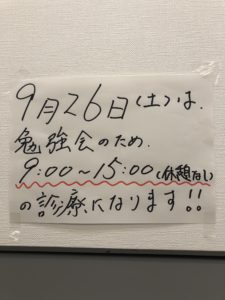 9月26日(土)は.
勉強会のため.
9:00～15:00(休憩なし)
の診療になります!!